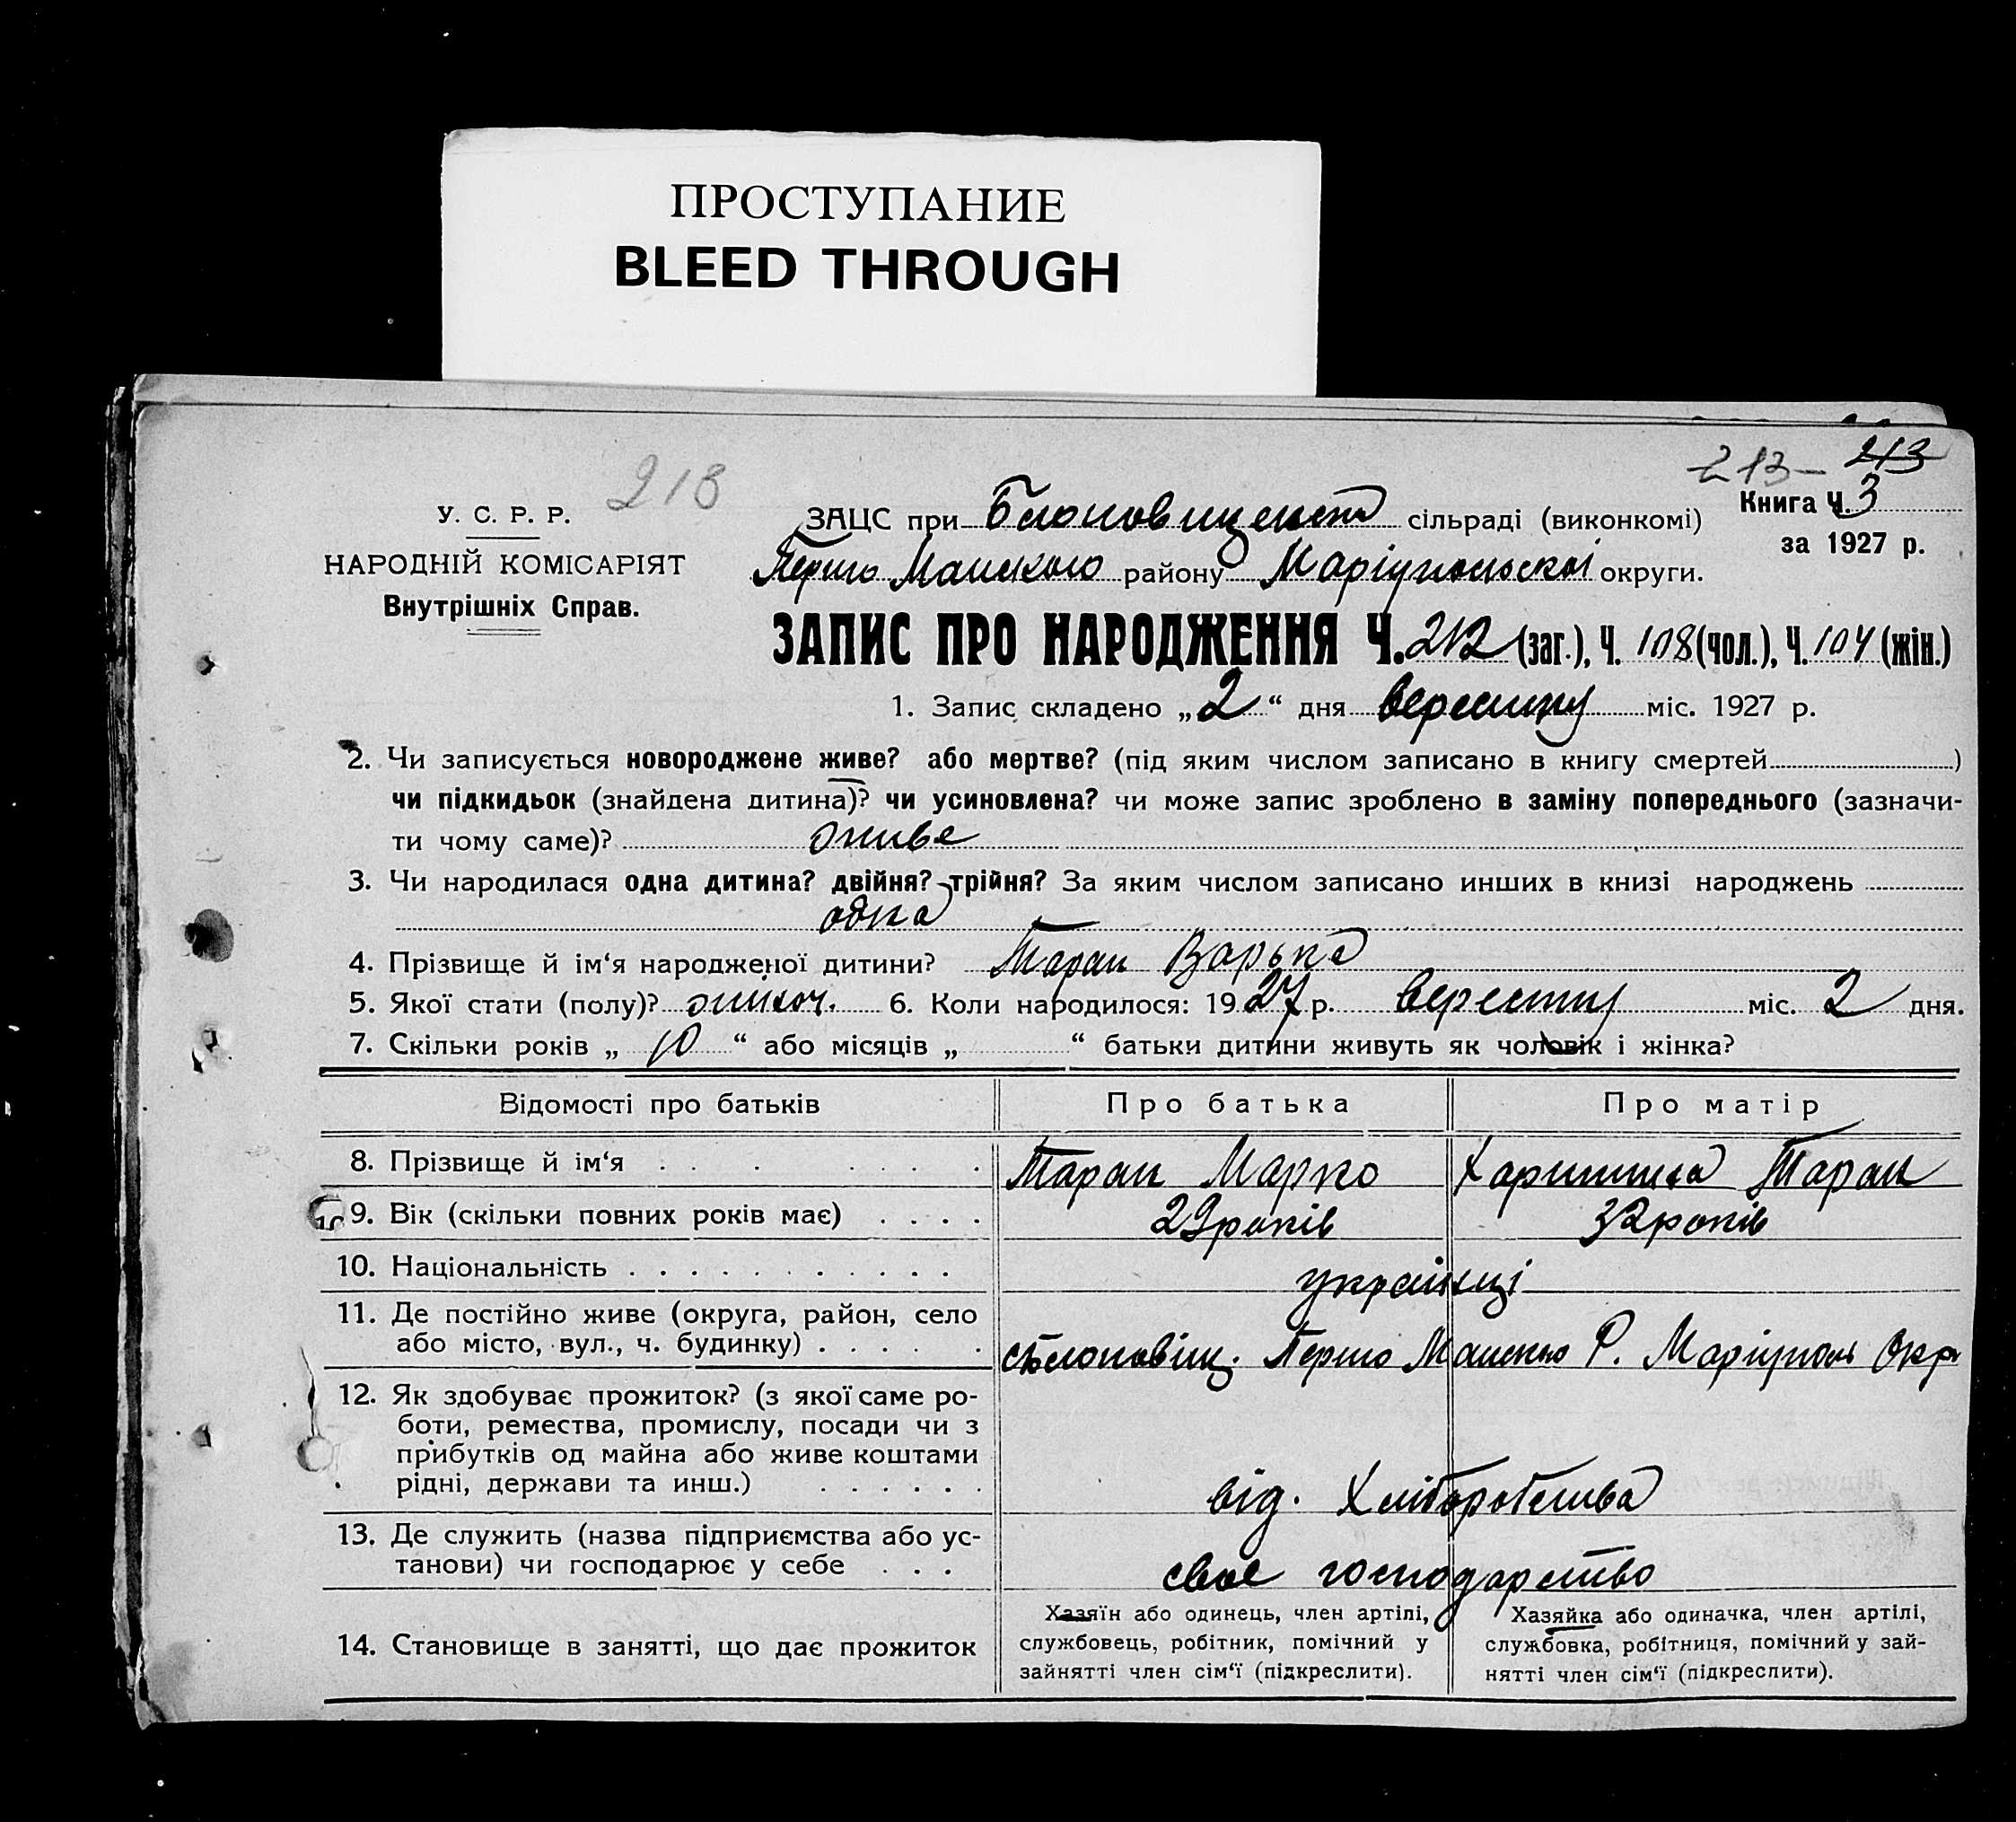 ПРОСТУПАНИЕ
BLEED THROUGH
213
213 - 213
У. С. Р. Р.
НАРОДНІЙ КОМІСАРІЯТ
Внутрішніх Справ.
Книга Ч. 3
за 1927 р.
ЗАЦС при сільраді (виконкомі)
Першо Майского району Маріупольскоі округи.
ЗАПИС ПРО НАРОДЖЕННЯ Ч. 212 (заг.), Ч. 108 (чол.), Ч. 104 (жін.)
1. Запис складено „2“ дня вересню міс. 1927 р.
2. Чи записується новороджене живе? або мертве? (під яким числом записано в книгу смертей )
чи підкидьок (знайдена дитина)? чи усиновлена? чи може запис зроблено в заміну попереднього (зазначи-
ти чому саме)? живе
3. Чи народилася одна дитина? двійня? трійня? За яким числом записано инших в книзі народжень
одна
4. Прізвище й ім‘я народженої дитини? Таран Варька
5. Якої стати (полу)? жіноч. 6. Коли народилося: 1927 р. вересню міс. 2 дня.
7. Скільки років „ 10 “ або місяців „ “ батьки дитини живуть як чоловік і жінка?
Відомості про батьків Про батька Про матір
8. Прізвище й ім‘я Таран Марко Таран
9. Вік (скільки повних років має) 29 років 32 років
10. Національність українці
11. Де постійно живе (округа, район, село
або місто, вул., ч. будинку) Першо Майсько Р. Маріуполь Окр
12. Як здобуває прожиток? (з якої саме ро-
боти, ремества, промислу, посади чи з
прибутків од майна або живе коштами
рідні, держави та инш.) від. Хліборобства
13. Де служить (назва підприємства або ус-
танови) чи господарює у себе своє господарство
14. Становище в занятті, що дає прожиток
Хазяїн або одинець, член артілі,
службовець, робітник, помічний у
зайнятті член сім‘ї (підкреслити).
Хазяйка або одиначка, член артілі,
службовка, робітниця, помічний у зай-
нятті член сім‘ї (підкреслити).